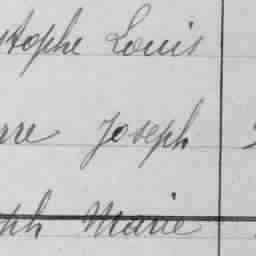 stophe Louis
rre Joseph
ph Marie